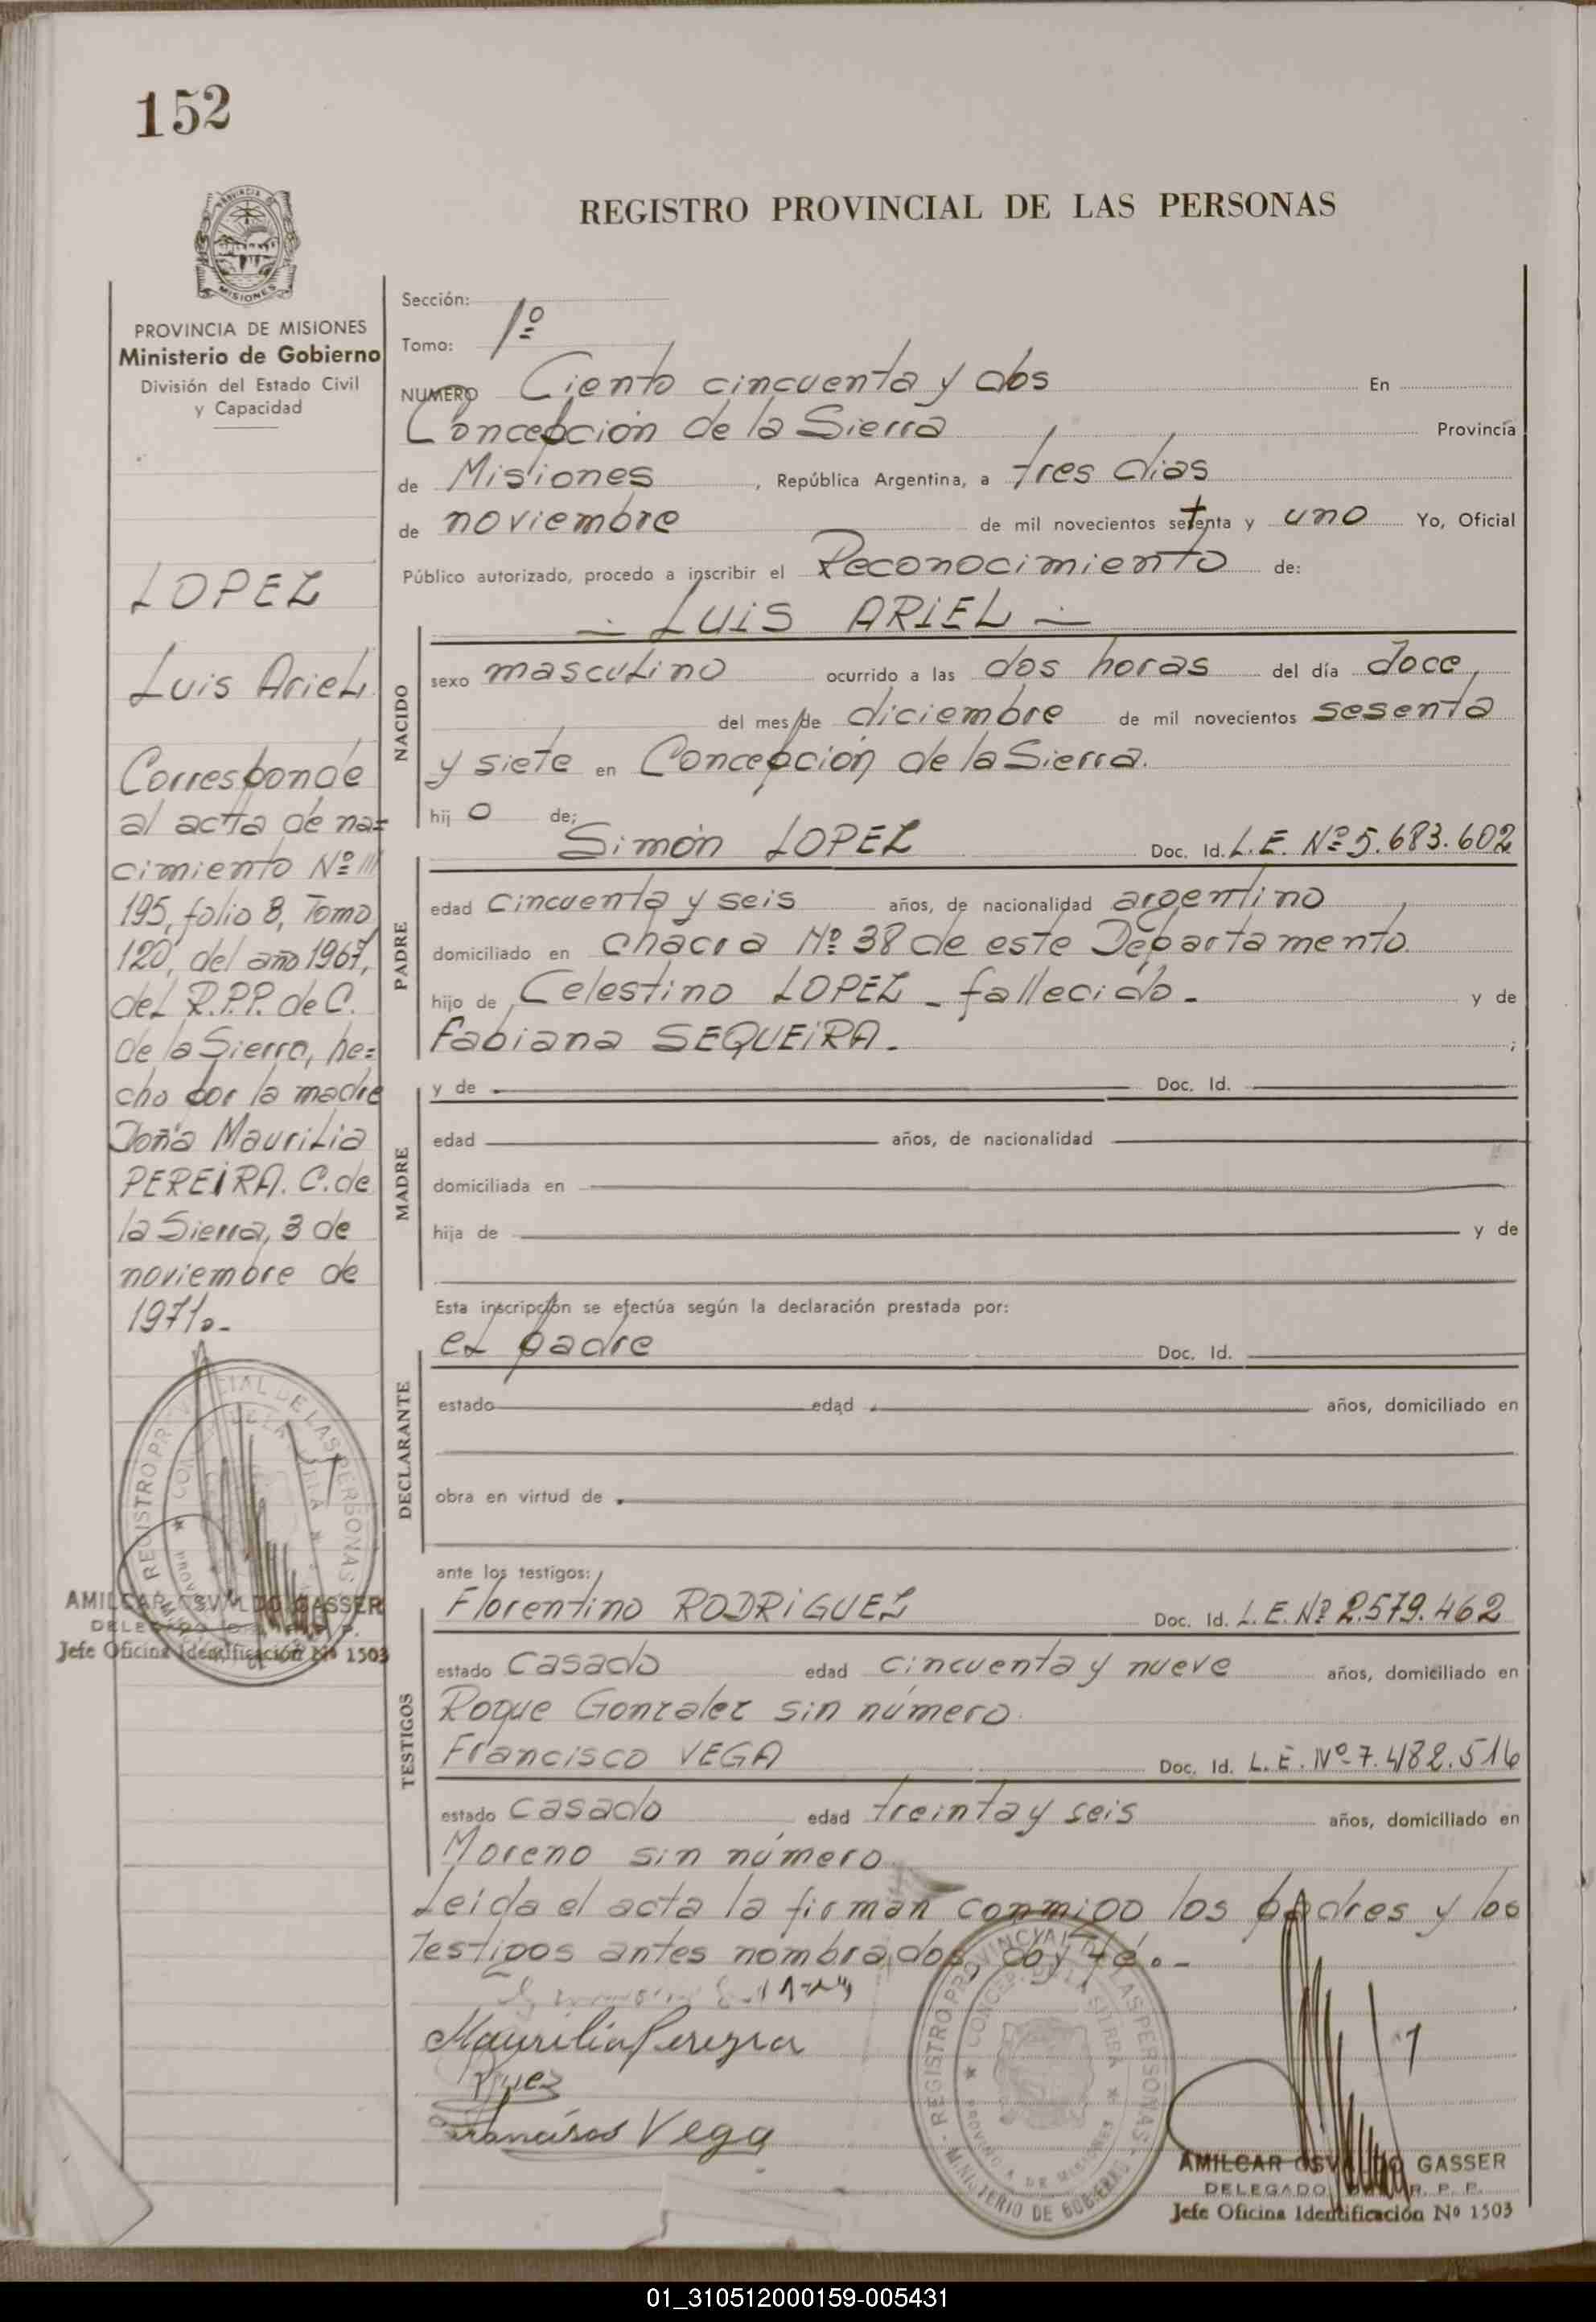 152
PROVINCIA
MISIONES
PROVINCIA DE MISIONES
Ministerio de Gobierno
División del Estado Civil
y Capacidad
LOPEZ
Luis Ariel
Corresponde
al acta de na=
cimiento Nº
195, folio 8, Tomo
120, del año 1967,
del R.P.P. de C.
de la Sierra, he=
cho por la madre
Doña Maurilia
PEREIRA. C. de
la Sierra, 3 de
noviembre de
1971.-
AMILCAR OSVALDO GASSER
DELEGADO
Jefe Oficina Identificación Nº 1503
REGISTRO PROVINCIAL DE LAS PERSONAS
Sección:
Tomo: 1º
NUMERO Ciento cincuenta y dos En
Concepción de la Sierra Provincia
de Misiones, República Argentina, a tres días
de noviembre de mil novecientos setenta y uno Yo, Oficial
Público autorizado, procedo a inscribir el Reconocimiento de:
- LUIS ARIEL -
NACIDO
sexo masculino ocurrido a las dos horas del día doce
del mes de diciembre de mil novecientos sesenta
y siete en Concepción de la Sierra.
hij o de;
PADRE
Simón LOPEZ Doc. Id. L.E. Nº 5.683.602
edad cincuenta y seis años, de nacionalidad argentino
domiciliado en chacra Nº 38 de este Departamento.
hijo de Celestino LOPEZ - fallecido - y de
Fabiana SEQUEIRA. - ;
MADRE
y de Doc. Id.
edad años, de nacionalidad
domiciliada en
hija de y de
Esta inscripción se efectúa según la declaración prestada por:
DECLARANTE
el padre Doc. Id.
estado edad años, domiciliado en
obra en virtud de
ante los testigos:
TESTIGOS
Florentino RODRIGUEZ Doc. Id. L.E. Nº 2.579.462
estado casado edad cincuenta y nueve años, domiciliado en
Roque Gonzalez sin número.
Francisco VEGA Doc. Id. L.E. Nº 7.482.516
estado casado edad treinta y seis años, domiciliado en
Moreno sin número.
Leida el acta la firman conmigo los padres y los
testigos antes nombrados, doy fé.-
Maurilia Pereyra
Francisco Vega
REGISTRO PROVINCIAL DE LAS PERSONAS
MINISTERIO DE GOBIERNO
AMILCAR OSVALDO GASSER
DELEGADO R. P. P.
Jefe Oficina Identificación Nº 1503
01_310512000159-005431